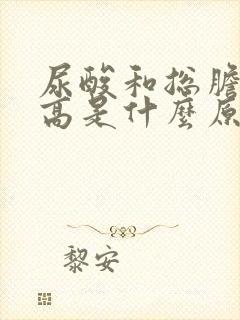 尿酸和总膽
高是什麼原
黎安